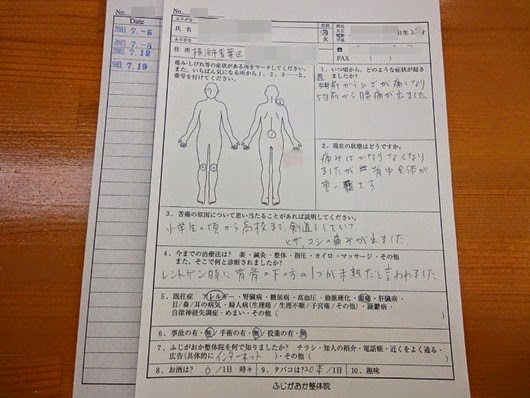 No.
Date
2003 7.-5
2003 7.-5
2003 7.12
2003 7.19
No.
ふりがな
氏 名
性別 男 女
年
月
日生
住 所 横浜市青葉区
☎ ( )
FAX ( )
痛み・しびれ等の症状がある所をマークしてください。
また、いちばん気になる所から1、2、3……と、
番号を付けてください。
1．いつ頃から、どのような症状が起き
ましたか?
前からひざが痛くなり
5日前から腰痛が出ました
2．現在の状態はどうですか。
痛みはかなりなくなり
ましたが 背中全体が
重い です
3．苦痛の原因について思い当たることがあれば説明してください。
小学生の頃から高校まで剣道をしていて
ヒザ、コシの痛みが出ました
4．今までの治療法は? 薬・鍼灸・整体・指圧・カイロ・マッサージ・その他
また、そこで何と診断されましたか?
レントゲン時に背骨の下の方の1つが未熟だと言われました
5．既往症 アレルギー・腎臓病・糖尿病・高血圧・動脈硬化・頭痛・肝臓病・
目/鼻/耳の病気・婦人病(生理痛/生理不順/子宮痛/その他)・躁鬱病・
自律神経失調症・めまい・その他( )
6．事故の有・無 手術の有・無 投薬の有・無
7．ふじがおか整体院を何で知りましたか? チラシ・知人の紹介・電話帳・近くをよく通る・
広告(具体的に インターネット )・その他( )
8．お酒は? 0 /1日 時々 9．タバコは? 20本 /1日 10．趣味
ふじがおか整体院